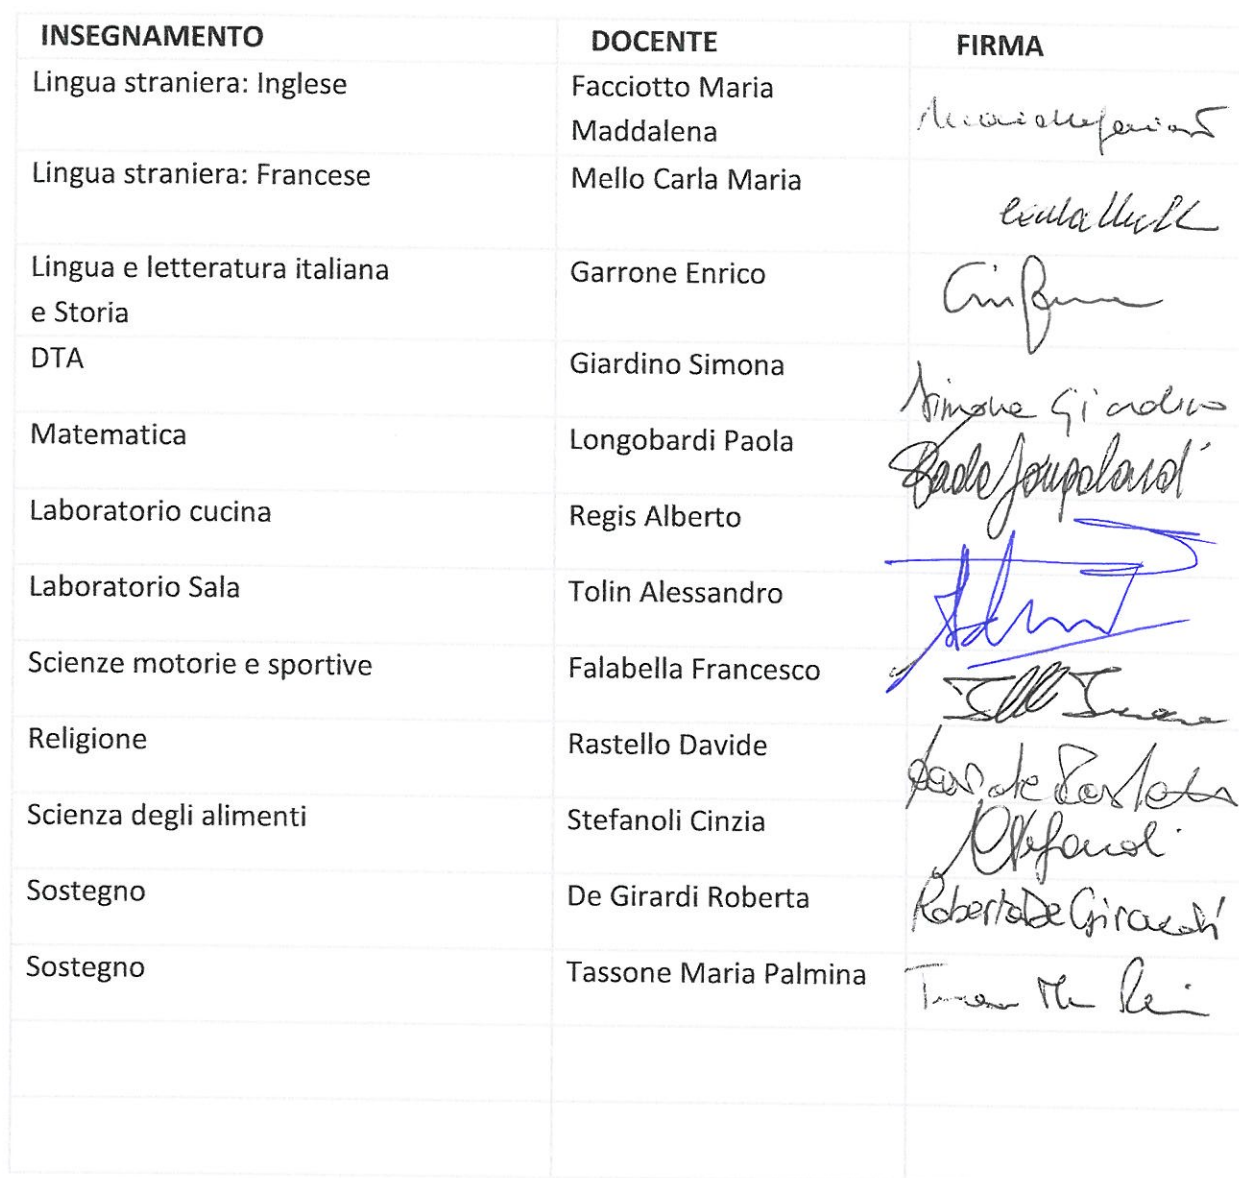 INSEGNAMENTO DOCENTE FIRMA
Lingua straniera: Inglese Facciotto Maria
Maddalena
Lingua straniera: Francese Mello Carla Maria
Lingua e letteratura italiana Garrone Enrico
e Storia
DTA Giardino Simona
Simona Giardino
Matematica Longobardi Paola
Laboratorio cucina Regis Alberto
Laboratorio Sala Tolin Alessandro
Scienze motorie e sportive Falabella Francesco
Religione Rastello Davide
Davide Rastello
Scienza degli alimenti Stefanoli Cinzia
Sostegno De Girardi Roberta
Roberta De Girardi
Sostegno Tassone Maria Palmina